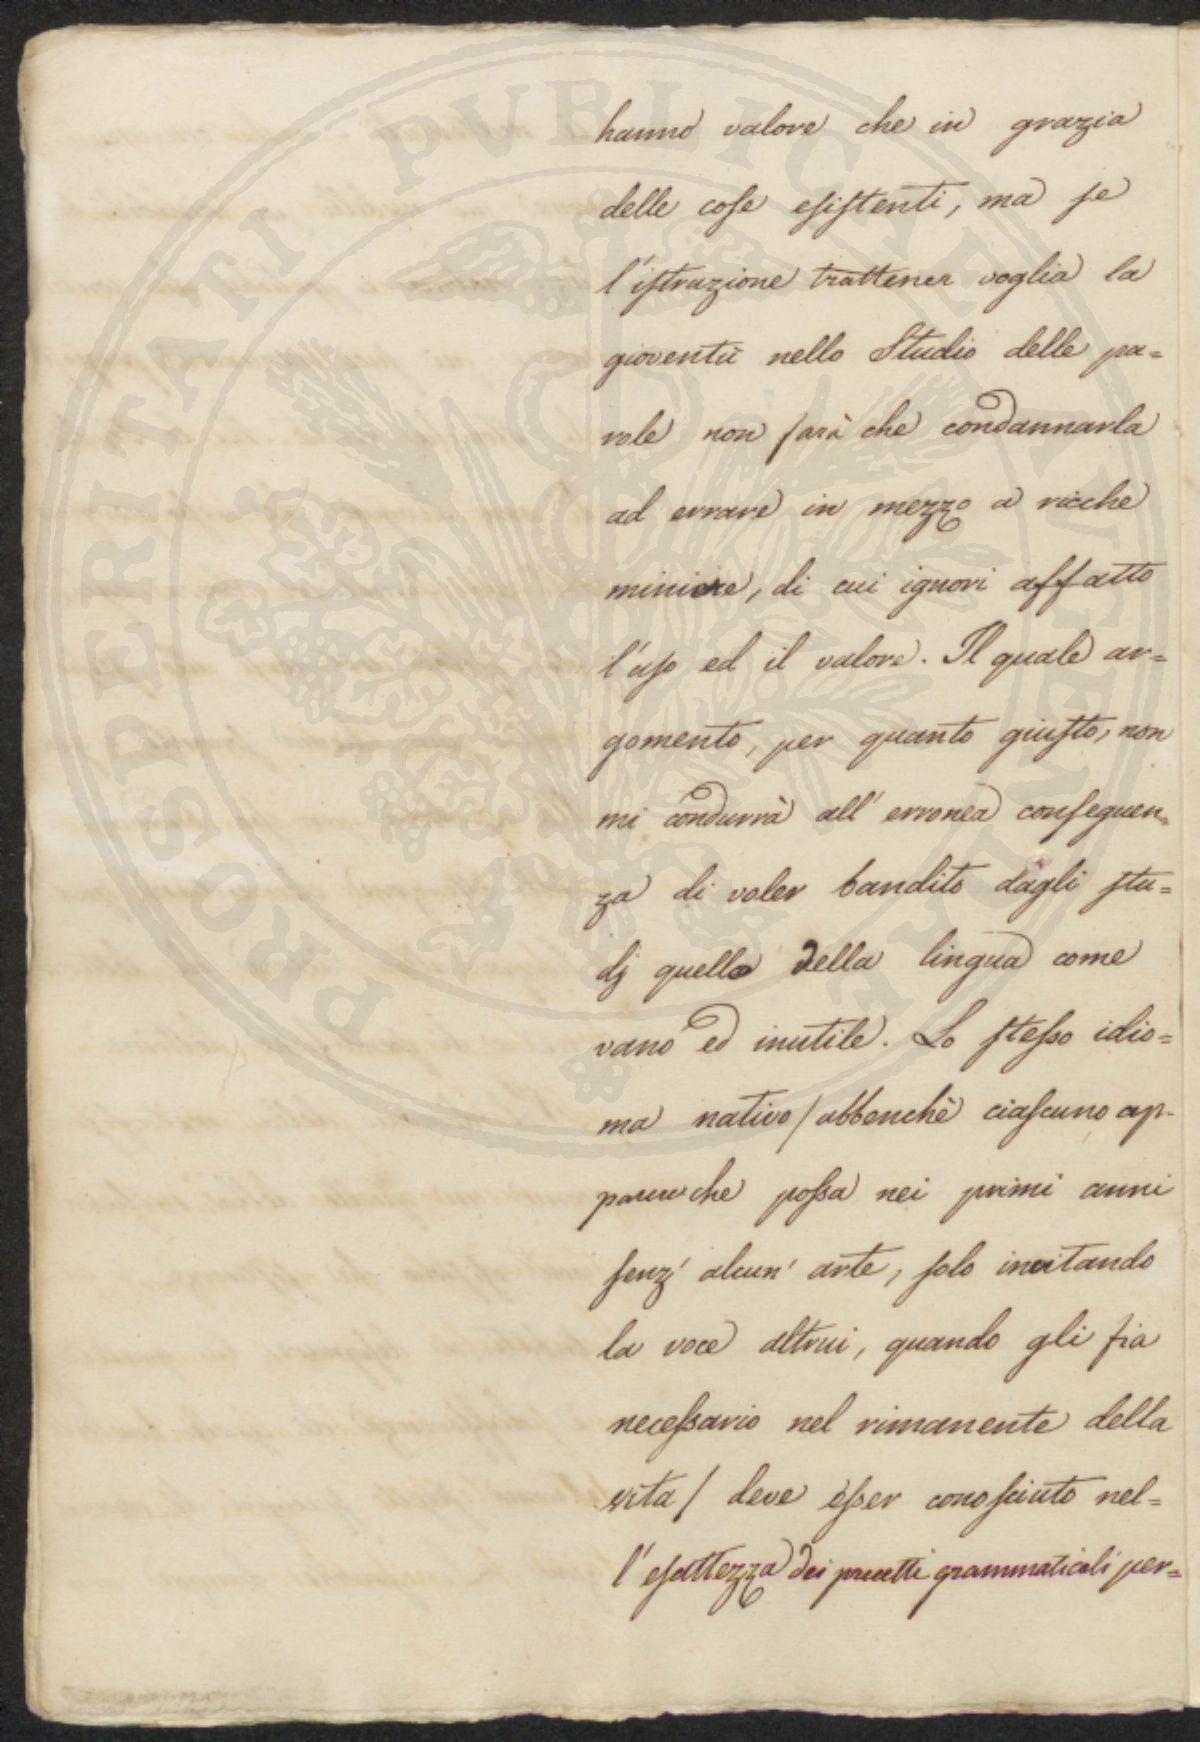 hanno valore che in grazia
delle cose esistenti, ma se
l'istruzione trattener voglia la
gioventù nello Studio delle pa=
role non sarà che condannarla
ad errare in mezzo a ricche
miniere, di cui ignori affatto
l'uso ed il valore. Il quale ar=
gomento, per quanto giusto, non
mi condurrà all' erronea conseguen=
za di voler bandito dagli stu=
dj quello della lingua come
vano ed inutile. Lo stesso idio=
ma nativo / abbenchè ciascuno ap-
parar che possa nei primi anni
senz' alcun' arte, solo imitando
la voce altrui, quando gli fia
necessario nel rimanente della
vita / deve esser conosciuto nel=
l'esattezza dei precetti grammaticali per=
PROSPERITATI PUBLICAE